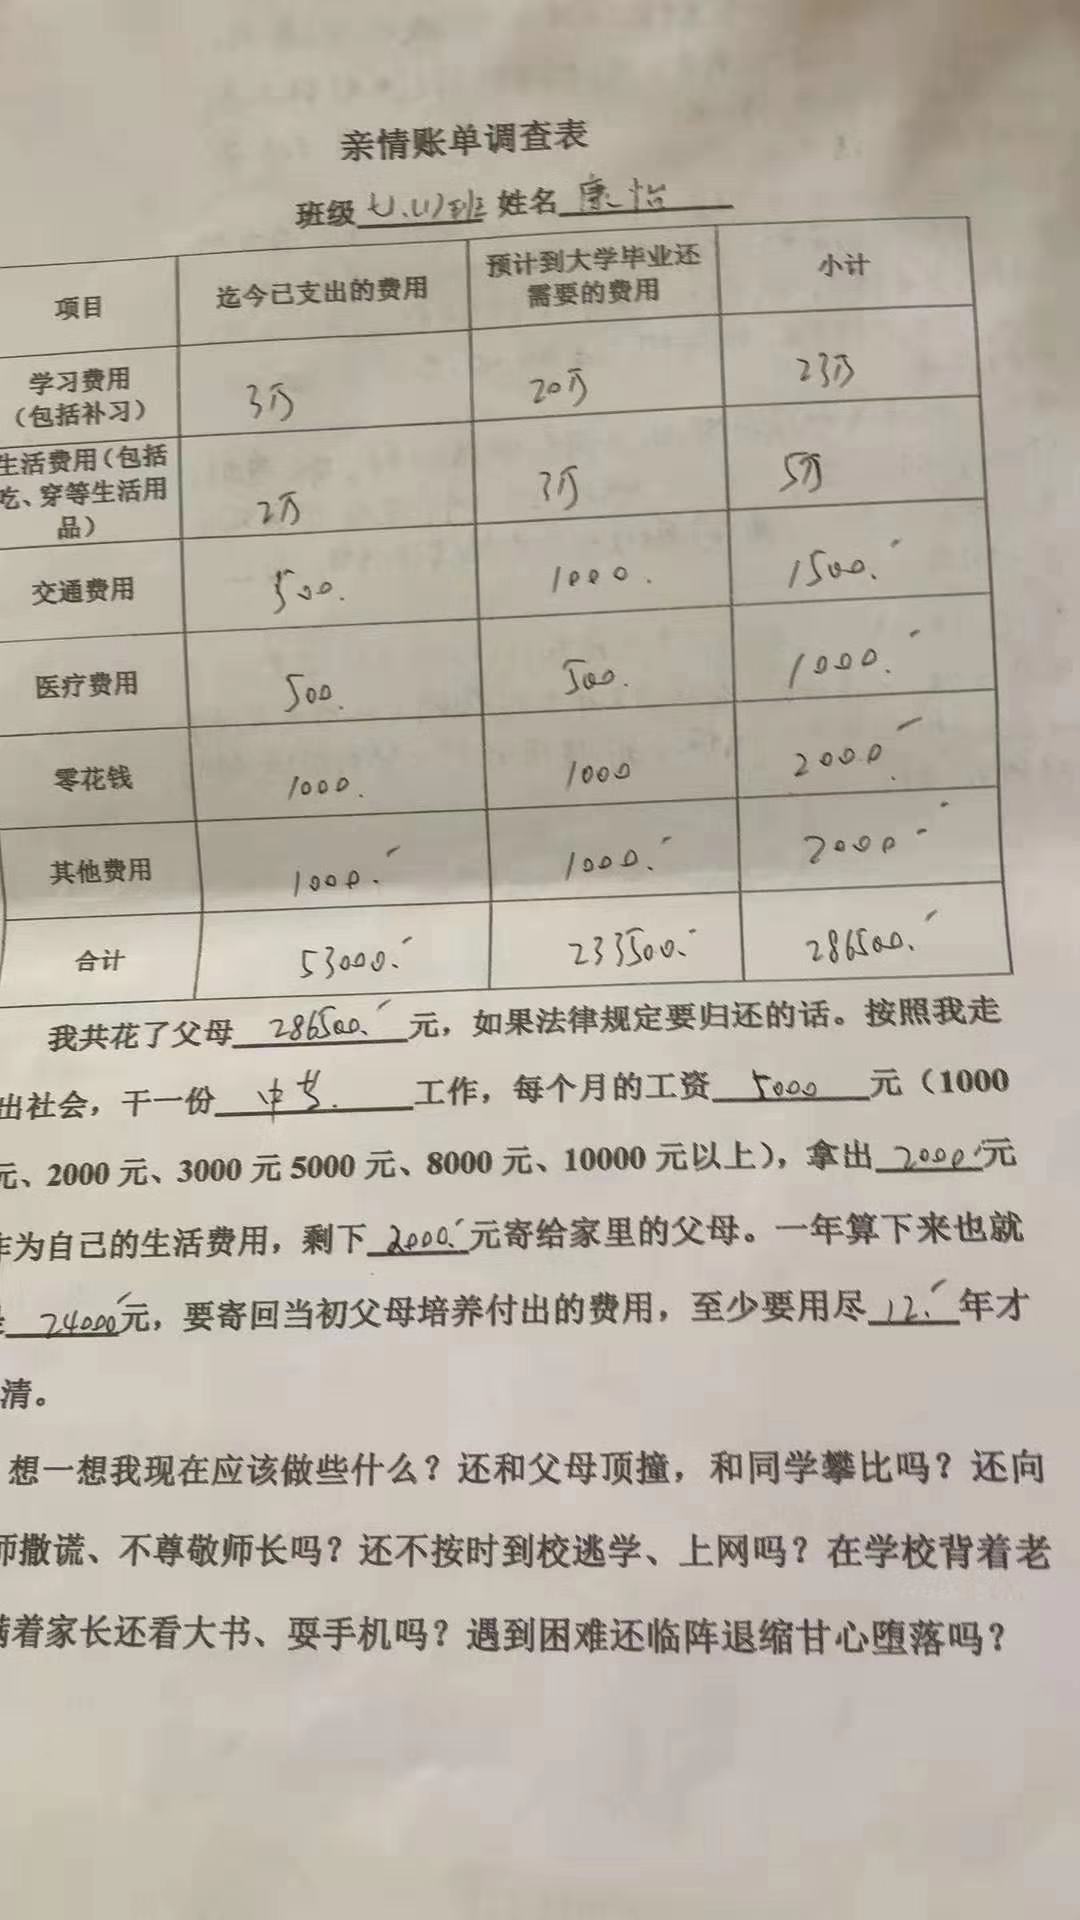 亲情账单调查表
班级七.(1)班 姓名 康怡
项目 迄今已支出的费用 预计到大学毕业还需要的费用 小计
学习费用(包括补习) 3万 20万 23万
生活费用(包括吃、穿等生活用品) 2万 3万 5万
交通费用 500. 1000. 1500.
医疗费用 500. 500. 1000.
零花钱 1000. 1000 2000.
其他费用 1000. 1000. 2000
合计 53000. 233500. 286500.
我共花了父母 286500. 元，如果法律规定要归还的话。按照我走
出社会，干一份 工作，每个月的工资 5000 元（1000
元、2000 元、3000 元 5000 元、8000 元、10000 元以上），拿出 2000 元
作为自己的生活费用，剩下 2000. 元寄给家里的父母。一年算下来也就
24000 元，要寄回当初父母培养付出的费用，至少要用尽 12. 年才
清。
想一想我现在应该做些什么？还和父母顶撞，和同学攀比吗？还向
师撒谎、不尊敬师长吗？还不按时到校逃学、上网吗？在学校背着老
满着家长还看大书、耍手机吗？遇到困难还临阵退缩甘心堕落吗？